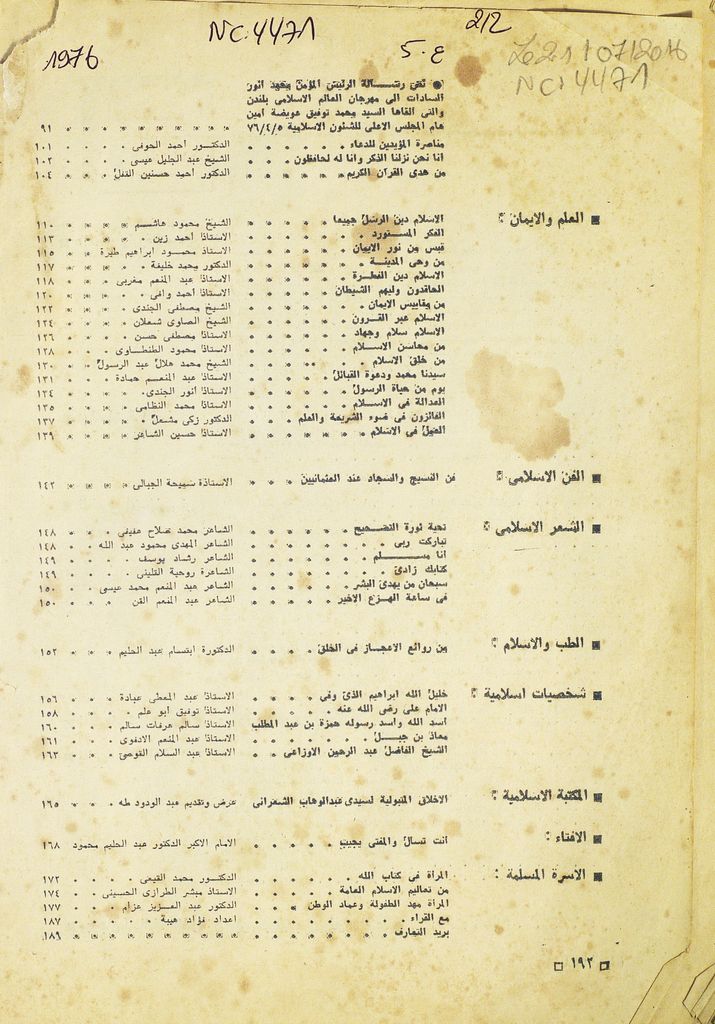 NC: 4471
212
1976
ع . 5
Le 21/07/2016
NC: 4471
● نص رسالة الرئيس المؤمن محمد أنور
السادات الى مهرجان العالم الاسلامى بلندن
والتى القاها السيد محمد توفيق عويضة أمين
عام المجلس الاعلى للشئون الاسلامية ٧٦/٤/٥ ٩١
مناصرة المؤيدين للدعاء الدكتور أحمد الحوفى ١٠١
انا نحن نزلنا الذكر وانا له لحافظون الشيخ عبد الجليل عيسى ١٠٢
من هدى القرآن الكريم الدكتور أحمد حسنين القفل ١٠٤
■ العلم والايمان :
الاسلام دين الرسل جميعا الشيخ محمود هاشم ١١٠
الفكر المستورد الاستاذ أحمد زين ١١٣
قبس من نور الايمان الاستاذ محمود ابراهيم طيرة ١١٥
من وحى المدينة الدكتور محمد خليفة ١١٧
الاسلام دين الفطرة الاستاذ عبد المنعم مغربى ١١٨
الحاقدون وليهم الشيطان الاستاذ أحمد وافى ١٢٠
من مقاييس الايمان الشيخ مصطفى الجندى ١٢٢
الاسلام عبر القرون الشيخ الصاوى شعلان ١٢٤
الاسلام سلام وجهاد الاستاذ مصطفى حسن ١٢٦
من محاسن الاسلام الاستاذ محمود الطنطاوى ١٢٨
من خلق الاسلام الشيخ محمد هلال عبد الرسول ١٣٠
سيدنا محمد ودعوة القبائل الاستاذ عبد المنعم حمادة ١٣١
يوم من حياة الرسول الاستاذ أنور الجندى ١٣٤
العدالة فى الاسلام الاستاذ محمد النظامى ١٣٥
الفائزون فى ضوء الشريعة والعلم الدكتور زكى مشعل ١٣٧
العمل فى الاسلام الاستاذ حسين الشاعر ١٣٩
■ الفن الاسلامى :
فن النسيج والسجاد عند العثمانيين الاستاذة سميحة الجبالى ١٤٢
■ الشعر الاسلامى :
تحية ثورة التصحيح الشاعر محمد صلاح عفيفى ١٤٨
تباركت ربى الشاعر المهدى محمود عبد الله ١٤٨
انا مسلم الشاعر رشاد يوسف ١٤٩
كتابك زادى الشاعرة روحية القلينى ١٤٩
سبحان من يهدى البشر الشاعر عبد المنعم محمد عيسى ١٥٠
فى ساعة الهزع الاخير الشاعر عبد المنعم الفن ١٥٠
■ الطب والاسلام :
من روائع الاعجاز فى الخلق الدكتورة ابتسام عبد الحليم ١٥٢
■ شخصيات اسلامية :
خليل الله ابراهيم الذى وفى الاستاذ عبد المعطى عبادة ١٥٦
الامام على رضى الله عنه الاستاذ توفيق أبو علم ١٥٨
أسد الله وأسد رسوله حمزة بن عبد المطلب الاستاذ سالم عرفات سالم ١٦٠
معاذ بن جبل الاستاذ عبد المنعم الادفوى ١٦١
الشيخ الفاضل عبد الرحمن الاوزاعى الاستاذ عبد السلام القوصى ١٦٣
■ المكتبة الاسلامية :
الاخلاق المتبولية لسيدى عبدالوهاب الشعرانى عرض وتقديم عبد الودود طه ١٦٥
■ الافتاء :
أنت تسأل والمفتى يجيب الامام الاكبر الدكتور عبد الحليم محمود ١٦٨
■ الاسرة المسلمة :
المرأة فى كتاب الله الدكتور محمد القيعى ١٧٢
من تعاليم الاسلام العامة الاستاذ مبشر الطرازى الحسينى ١٧٤
المرأة مهد الطفولة وعماد الوطن الدكتور عبد العزيز عزام ١٧٧
مع القراء اعداد فؤاد هيبة ١٨٧
بريد التعارف ١٨٩
□ ١٩٢ □